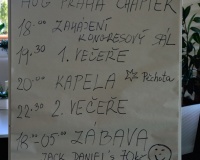 HOG PRAHA CHAPTER
18:00 ZAHÁJENÍ
KONGRESOVÝ SÁL
19:30 1. VEČEŘE
20:00 KAPELA Pichota
22:30 2. VEČEŘE
-05:00 ZÁBAVA
JACK DANIEL'S